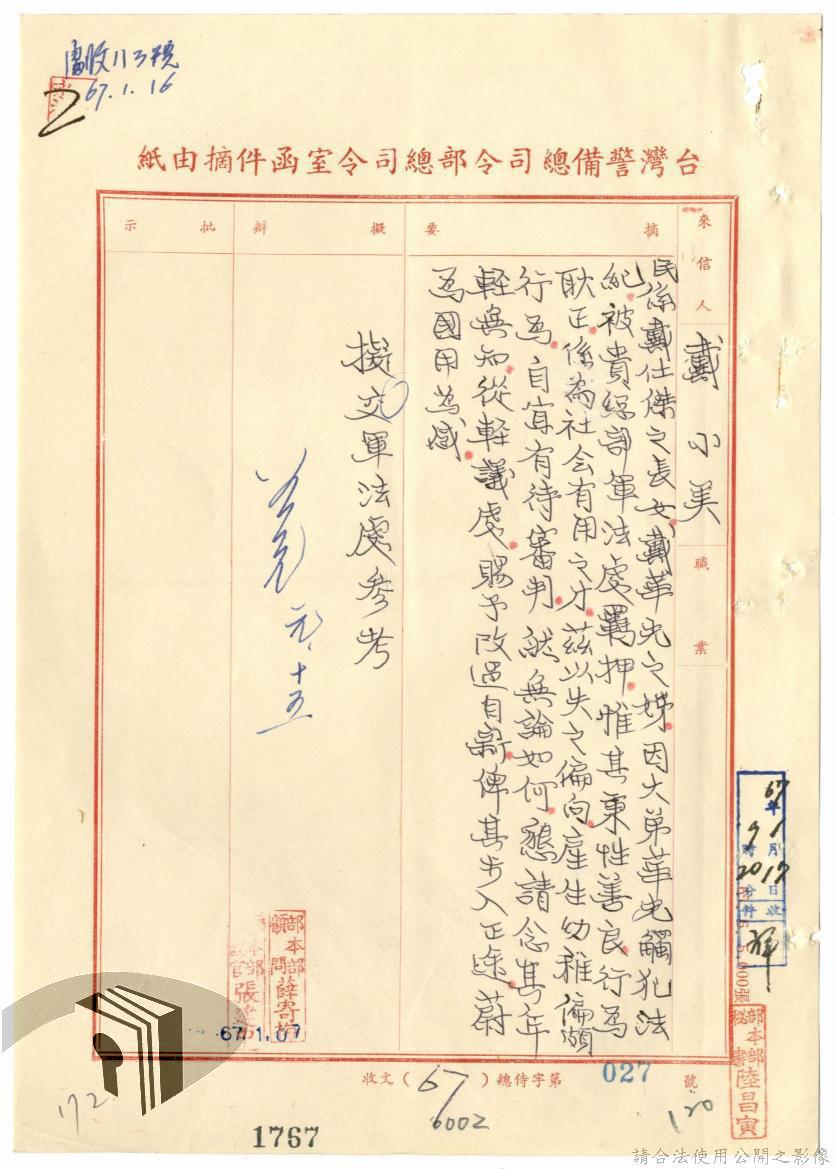 處收113號
67.1.16
2
台灣警備總司令部總司令室函件摘由紙
來信人
戴小美
職業
摘要
民係戴仕傑之長女戴華光之姊因大弟華光觸犯法
紀被貴總部軍法處羈押惟其秉性善良行為
耿正係為社会有用之才茲以失之偏向產生幼稚偏頗
行為自宜有待審判然無論如何懇請念其年
輕無知從輕議處賜予改過自新俾其步入正途蔚
為國用為感
擬辦
擬交軍法處參考
元、十五
批示
部本部
顧問薛寄梅
67.1.07
67年1月17日
9時20分
收件
部本部
秘書陸昌寅
收文(67)總侍字第027號
6002
120
172
1767
請合法使用公開之影像